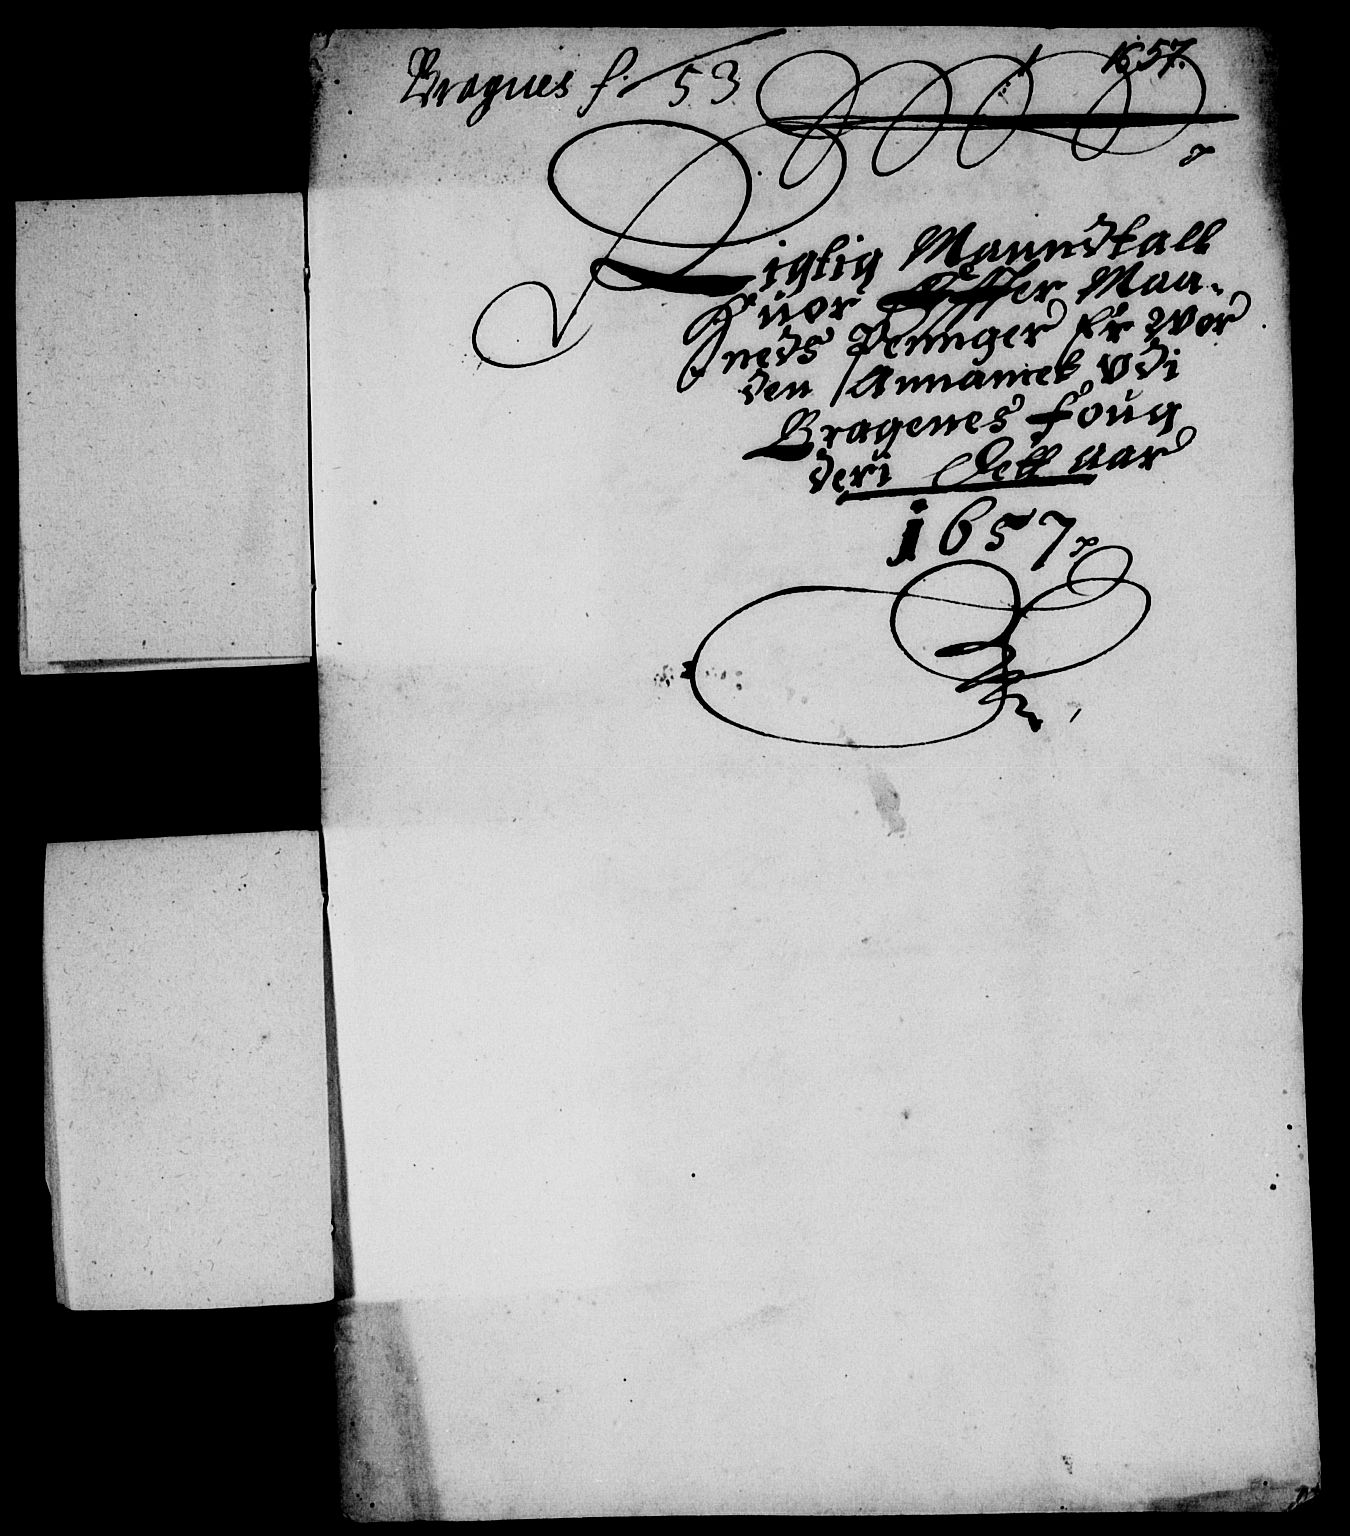 Bragnes f. 53 1657.
Rigtig Manndtall
Huor Effter Maa-
neds Peninger Er Wor
den Annamet Vdi
Bragenes Foug
deri Dett Aar
1657